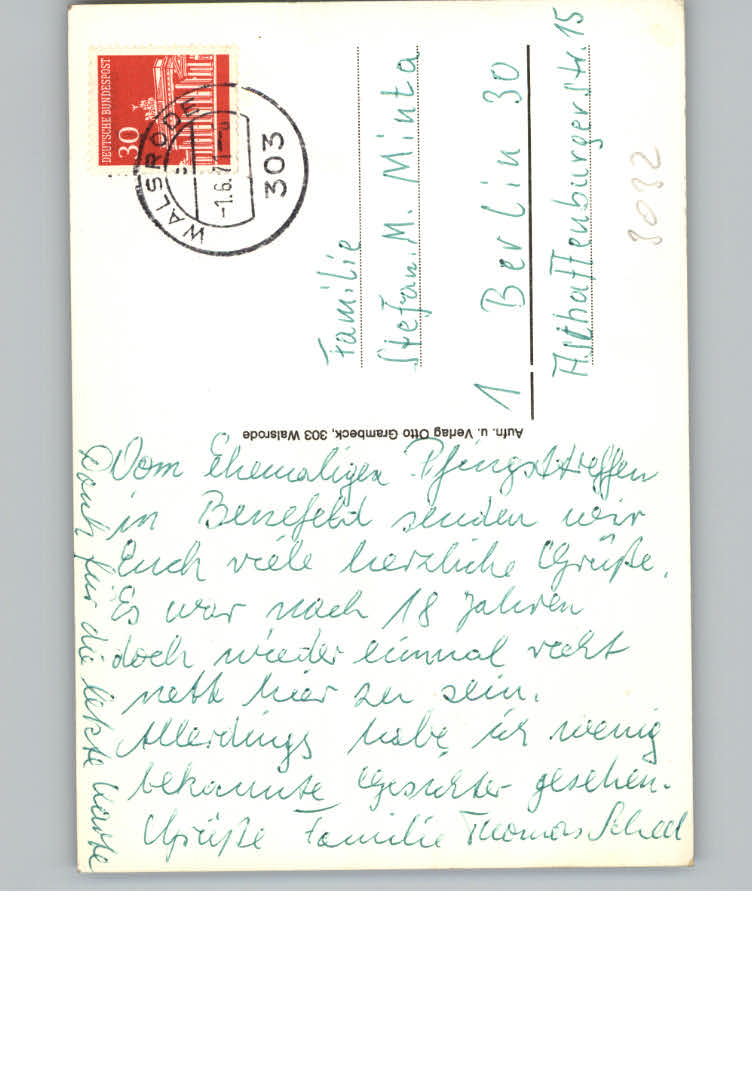 Vom Ehemaligen Pfingsttreffen
in Benefeld senden wir
Euch viele herzliche Grüße.
Es war nach 18 Jahren
doch wieder einmal recht
nett hier zu sein.
Allerdings habe ich wenig
bekannte Gesichter gesehen.
Grüße Familie Thomas Scheel
Dank für die letzte Karte
Aufn. u. Verlag Otto Grambeck, 303 Walsrode
DEUTSCHE BUNDESPOST
30
WALSRODE
-1.6.71
303
Familie
Stefan. M. Minta
1 Berlin 30
Aschaffenburger Str. 15
3032